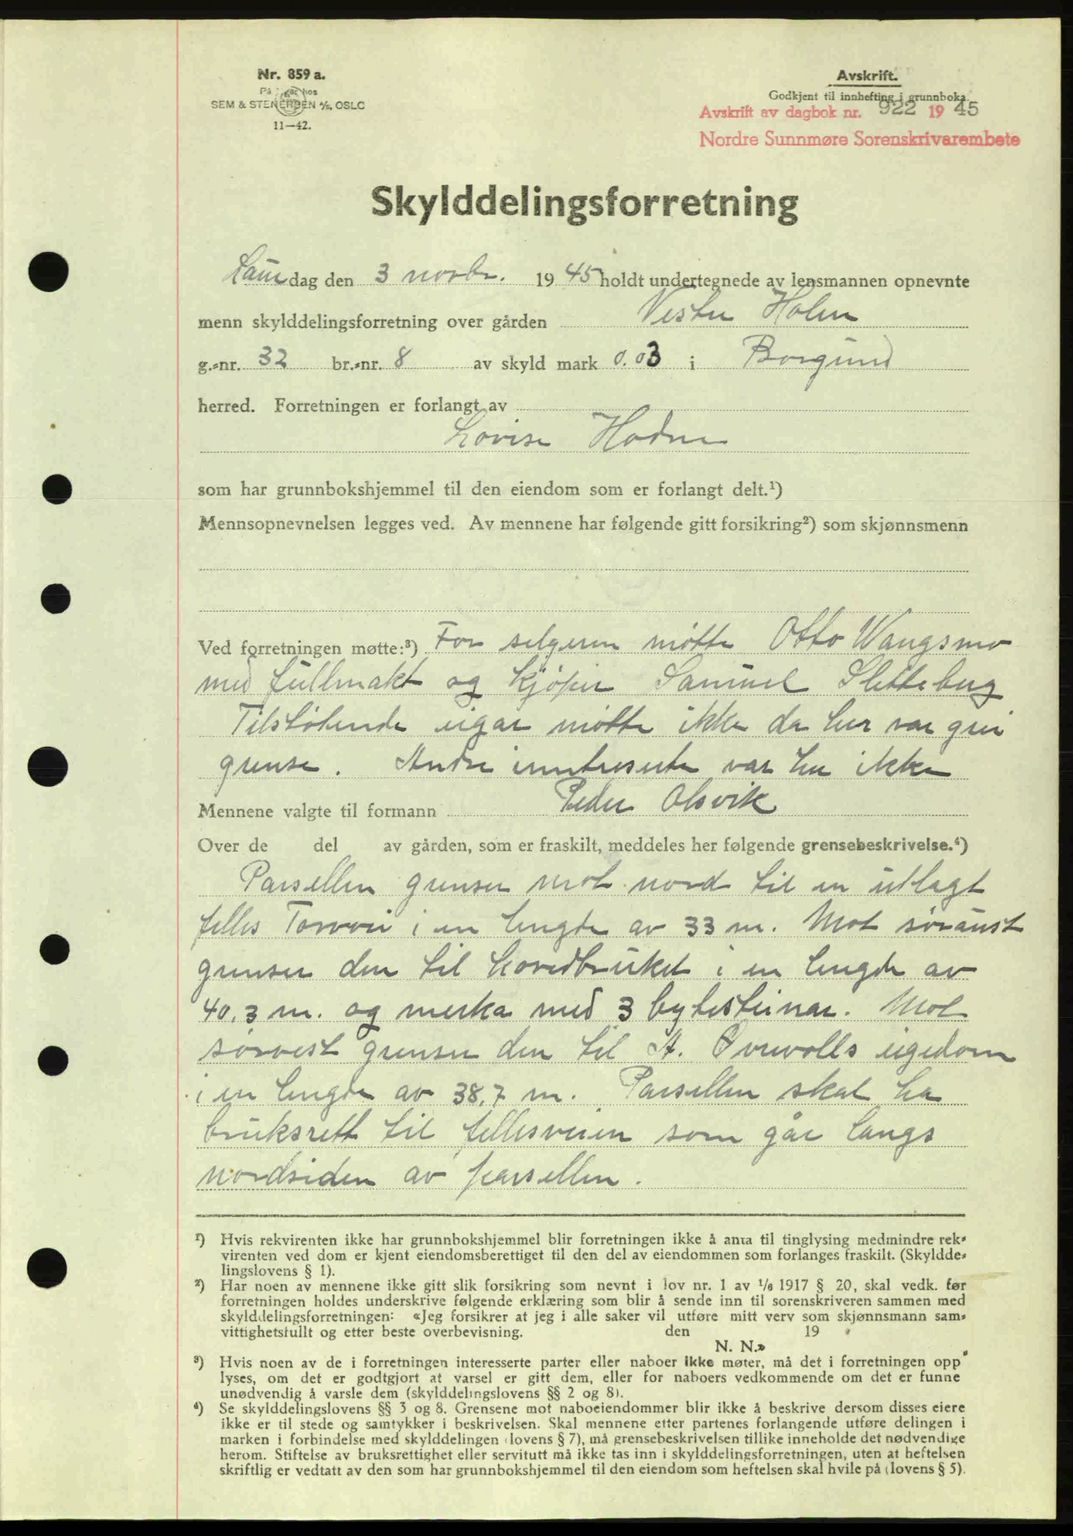 Nr. 859 a.
På lager hos
SEM & STENERSEN A/S, OSLO
11—42.
Avskrift.
Godkjent til innhefting i grunnboka.
Avskrift av dagbok nr. 922 1945
Nordre Sunnmøre Sorenskrivarembete
Skylddelingsforretning
Laurdag den 3 novbr. 1945 holdt undertegnede av lensmannen opnevnte
menn skylddelingsforretning over gården Vestre Holen
g.-nr. 32 br.-nr. 8 av skyld mark 0.03 i Borgund
herred. Forretningen er forlangt av
Lovise Hodne
som har grunnbokshjemmel til den eiendom som er forlangt delt.¹)
Mennsopnevnelsen legges ved. Av mennene har følgende gitt forsikring²) som skjønnsmenn
Ved forretningen møtte:³) For selgeren møtte Otto Wangsmo
med fullmakt og kjøper Samuel Sletteberg
Tilstøtende eigar møtte ikke da her var grei
grense. Andre inntreserte var her ikke
Mennene valgte til formann Peder Olsvik
Over de del av gården, som er fraskilt, meddeles her følgende grensebeskrivelse.⁴)
Parsellen grenser mot nord til en utlagt
felles Torvvei i en lengde av 33 m. Mot søraust
grenser den til hovedbruket i en lengde av
40,3 m. og merka med 3 bytesteinar. Mot
sørvest grenser den til A. Overvolls eigedom
i en lengde av 38,7 m. Parsellen skal ha
bruksrett til fellesveien som går langs
nordsiden av parsellen.
¹) Hvis rekvirenten ikke har grunnbokshjemmel blir forretningen ikke å anta til tinglysing medmindre rek-
virenten ved dom er kjent eiendomsberettiget til den del av eiendommen som forlanges fraskilt. (Skyldde-
lingslovens § 1).
²) Har noen av mennene ikke gitt slik forsikring som nevnt i lov nr. 1 av ¹/₆ 1917 § 20, skal vedk. før
forretningen holdes underskrive følgende erklæring som blir å sende inn til sorenskriveren sammen med
skylddelingsforretningen: «Jeg forsikrer at jeg i alle saker vil utføre mitt verv som skjønnsmann sam-
vittighetsfullt og etter beste overbevisning. den 19 .
N. N.»
³) Hvis noen av de i forretningen interesserte parter eller naboer ikke møter, må det i forretningen opp-
lyses, om det er godtgjort at varsel er gitt dem, eller for naboers vedkommende om det er funne
unødvendig å varsle dem (skylddelingslovens §§ 2 og 8).
⁴) Se skylddelingslovens §§ 3 og 8. Grensene mot naboeiendommer blir ikke å beskrive dersom disses eiere
ikke er til stede og samtykker i beskrivelsen. Skal mennene etter partenes forlangende utføre delingen i
marken i forbindelse med skylddelingen (lovens § 7), må grensebeskrivelsen tillike inneholde det nødvendige
herom. Stiftelse av bruksrettighet eller servitutt må ikke tas inn i skylddelingsforretningen, uten at heftelsen
skriftlig er vedtatt av den som har grunnbokshjemmel til den eiendom som heftelsen skal hvile på (lovens § 5).